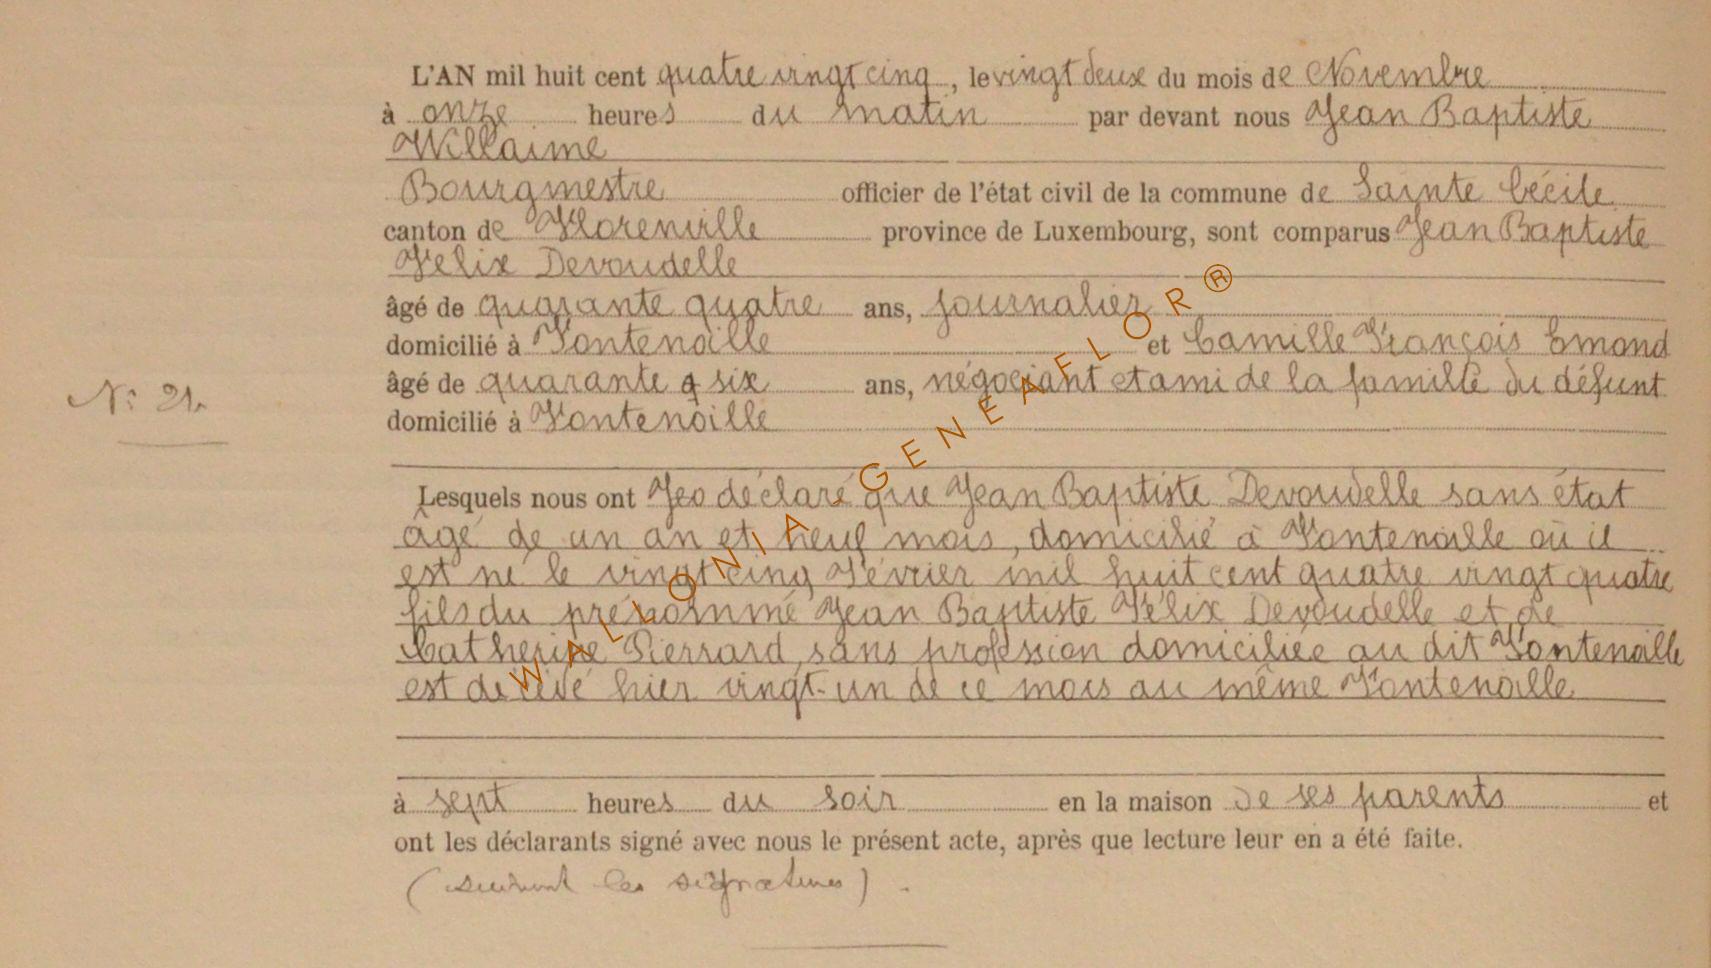 L'AN mil huit cent quatre vingt cinq, le vingt deux du mois de Novembre
à onze heures du matin par devant nous Jean Baptiste
Willaime
Bourgmestre officier de l'état civil de la commune de Sainte Cécile
canton de Florenville province de Luxembourg, sont comparus Jean Baptiste
Félix Devoudelle
âgé de quarante quatre ans, journalier
domicilié à Fontenoille et Camille François Emond
âgé de quarante & six ans, négociant et ami de la famille du défunt
N° 21.
domicilié à Fontenoille
Lesquels nous ont déclaré que Jean Baptiste Devoudelle sans état
âgé de un an et neuf mois, domicilié à Fontenoille où il
est né le vingt cinq Février mil huit cent quatre vingt quatre
fils du prénommé Jean Baptiste Félix Devoudelle et de
Catherine Pierrard, sans profession domiciliée au dit Fontenoille
est décédé hier vingt-un de ce mois au même Fontenoille
à sept heures du soir en la maison de ses parents et
ont les déclarants signé avec nous le présent acte, après que lecture leur en a été faite.
(suivent les signatures).
WALLONIA GENEAFLOR®